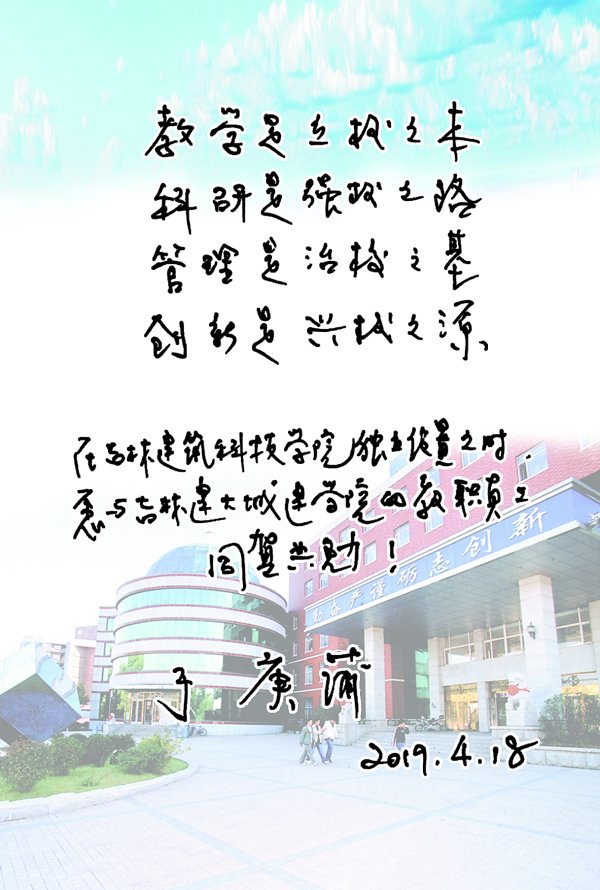 教学是立校之本
科研是强校之路
管理是治校之基
创新是兴校之源
在吉林建筑科技学院独立设置之时，
愿与吉林建大城建学院的教职员工
同贺共勉！
勤奋 严谨 砺志 创新
于庚蒲
2019.4.18